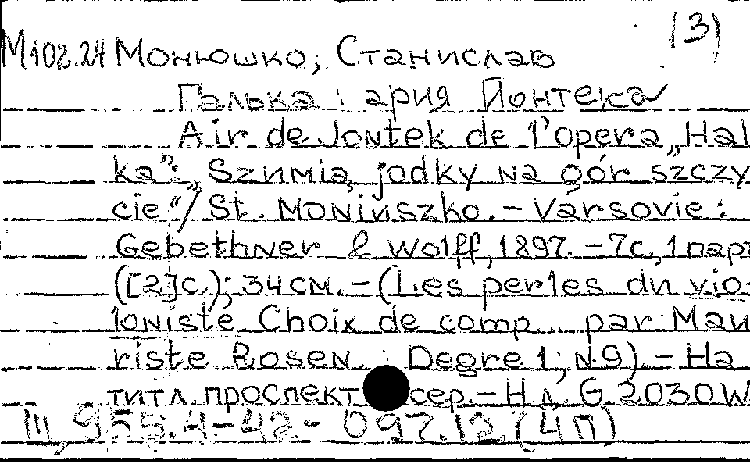 (3)
М102.24 Монюшко, Станислав
Галька : ария Йонтека
Air de Jontek de l'opera „Hal
ka": „Szumią jodky na gór szczy
cie"/ St. Moniuszko. - Varsovie :
Gebethner & Wolff, 1897. - 7с, 1 парт
([2]с.); 34 см. - (Les perles du vio-
loniste Choix de comp. par Mau
riste Rosen. Degre 1; N9). - На
титл. проспект сер. - Н.д. G. 2030 W
III, 955.4-42- 097.12 (4п)